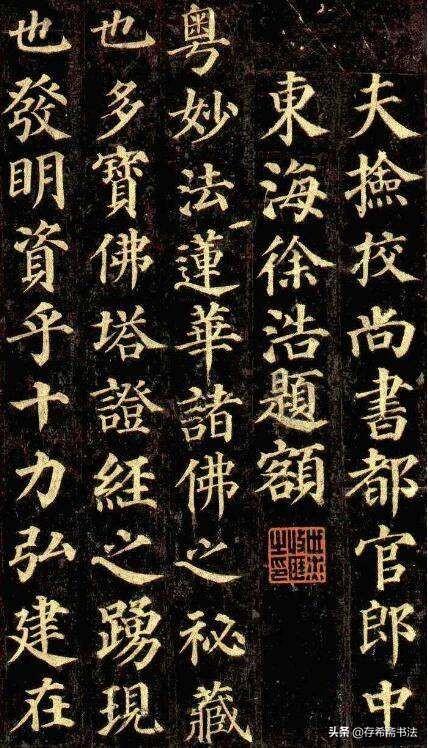 夫撿挍尚書都官郎中
東海徐浩題額
粵妙法蓮華諸佛之祕藏
也多寶佛塔證經之踴現
也發明資乎十力弘建在
头条 @存希斋书法